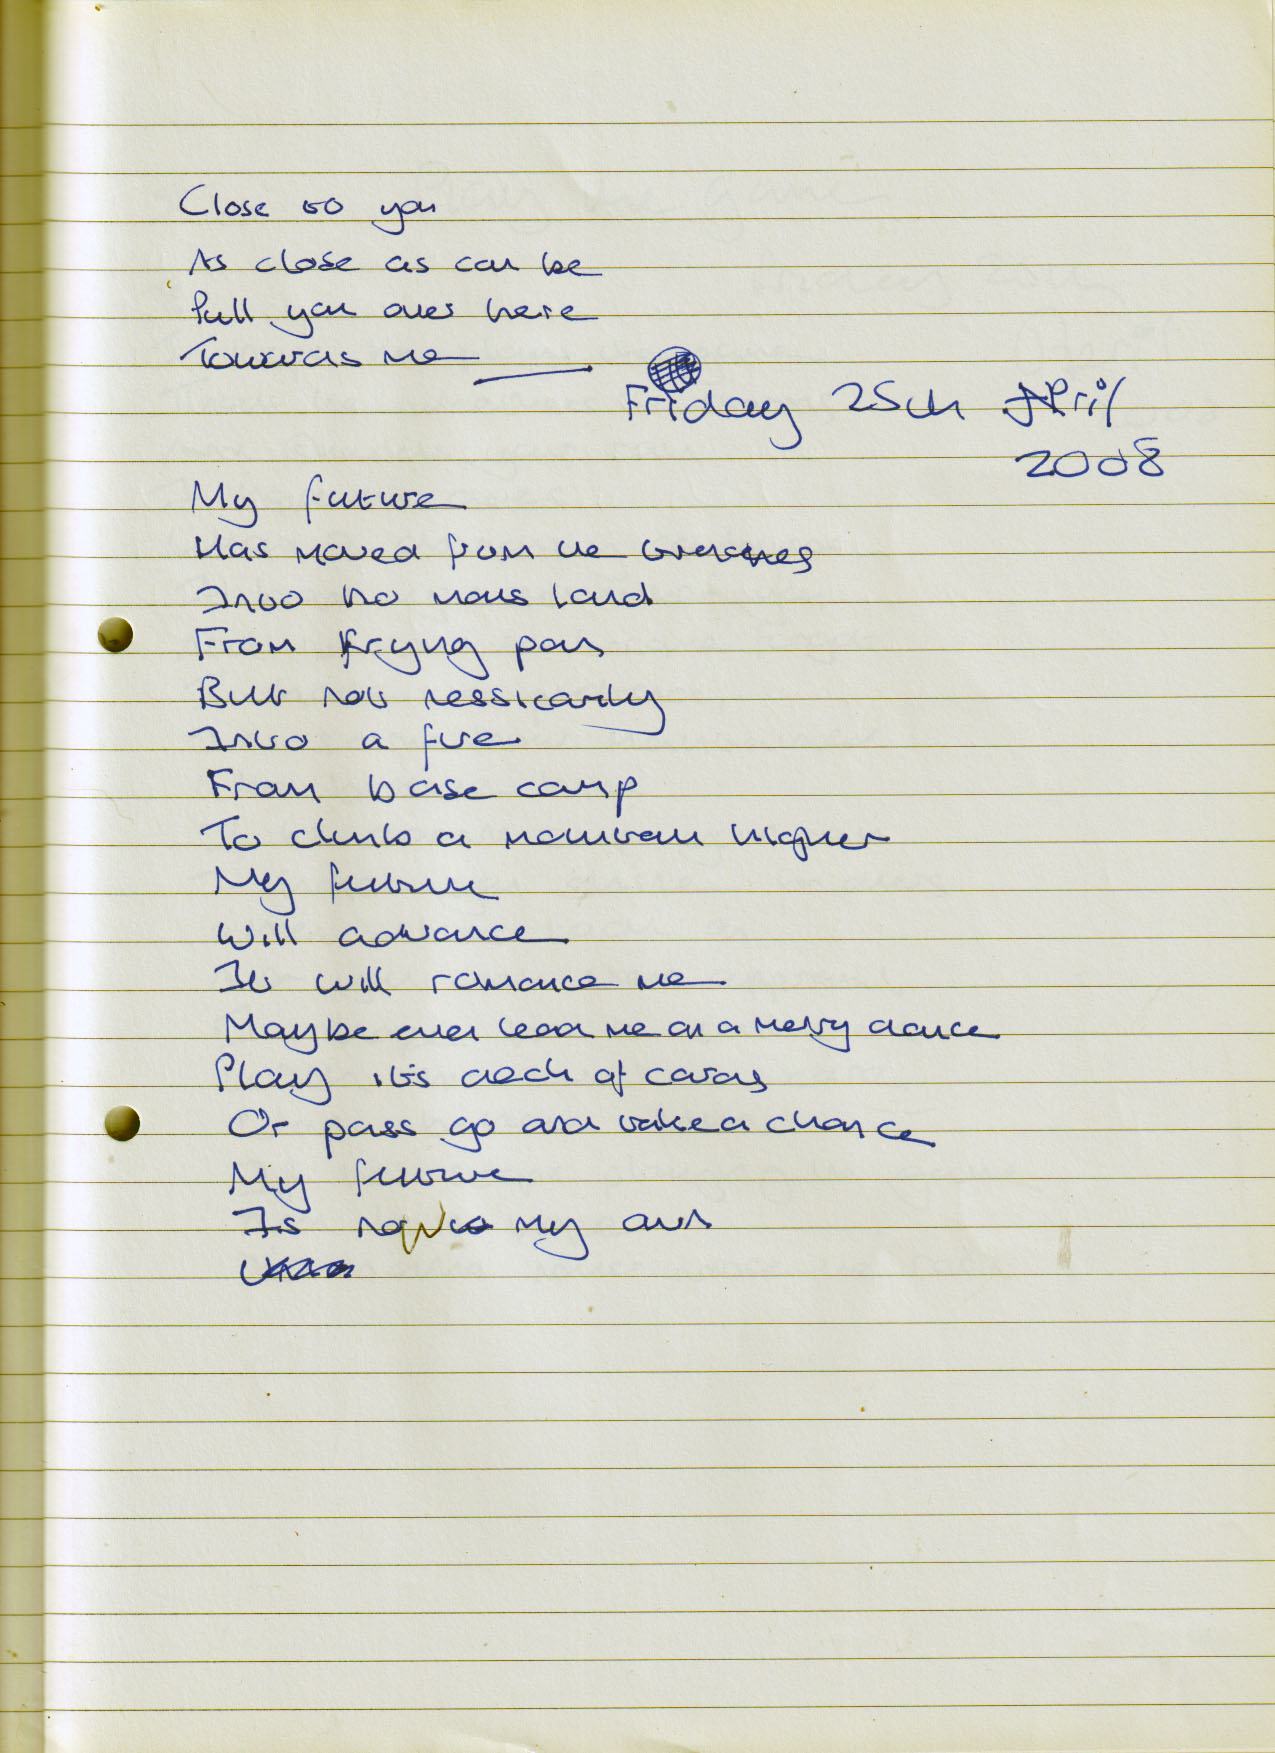 Close to you
As close as can be
Pull you over here
Towards me
Friday 25th April
2008
My future
Has moved from the trenches
Into no mans land
From frying pan
But not nessicarily
Into a fire
From base camp
To climb a mountain higher
My future
Will advance
It will romance me
Maybe even lead me on a merry dance
Play it's deck of cards
Or pass go and take a chance
My future
Is my own